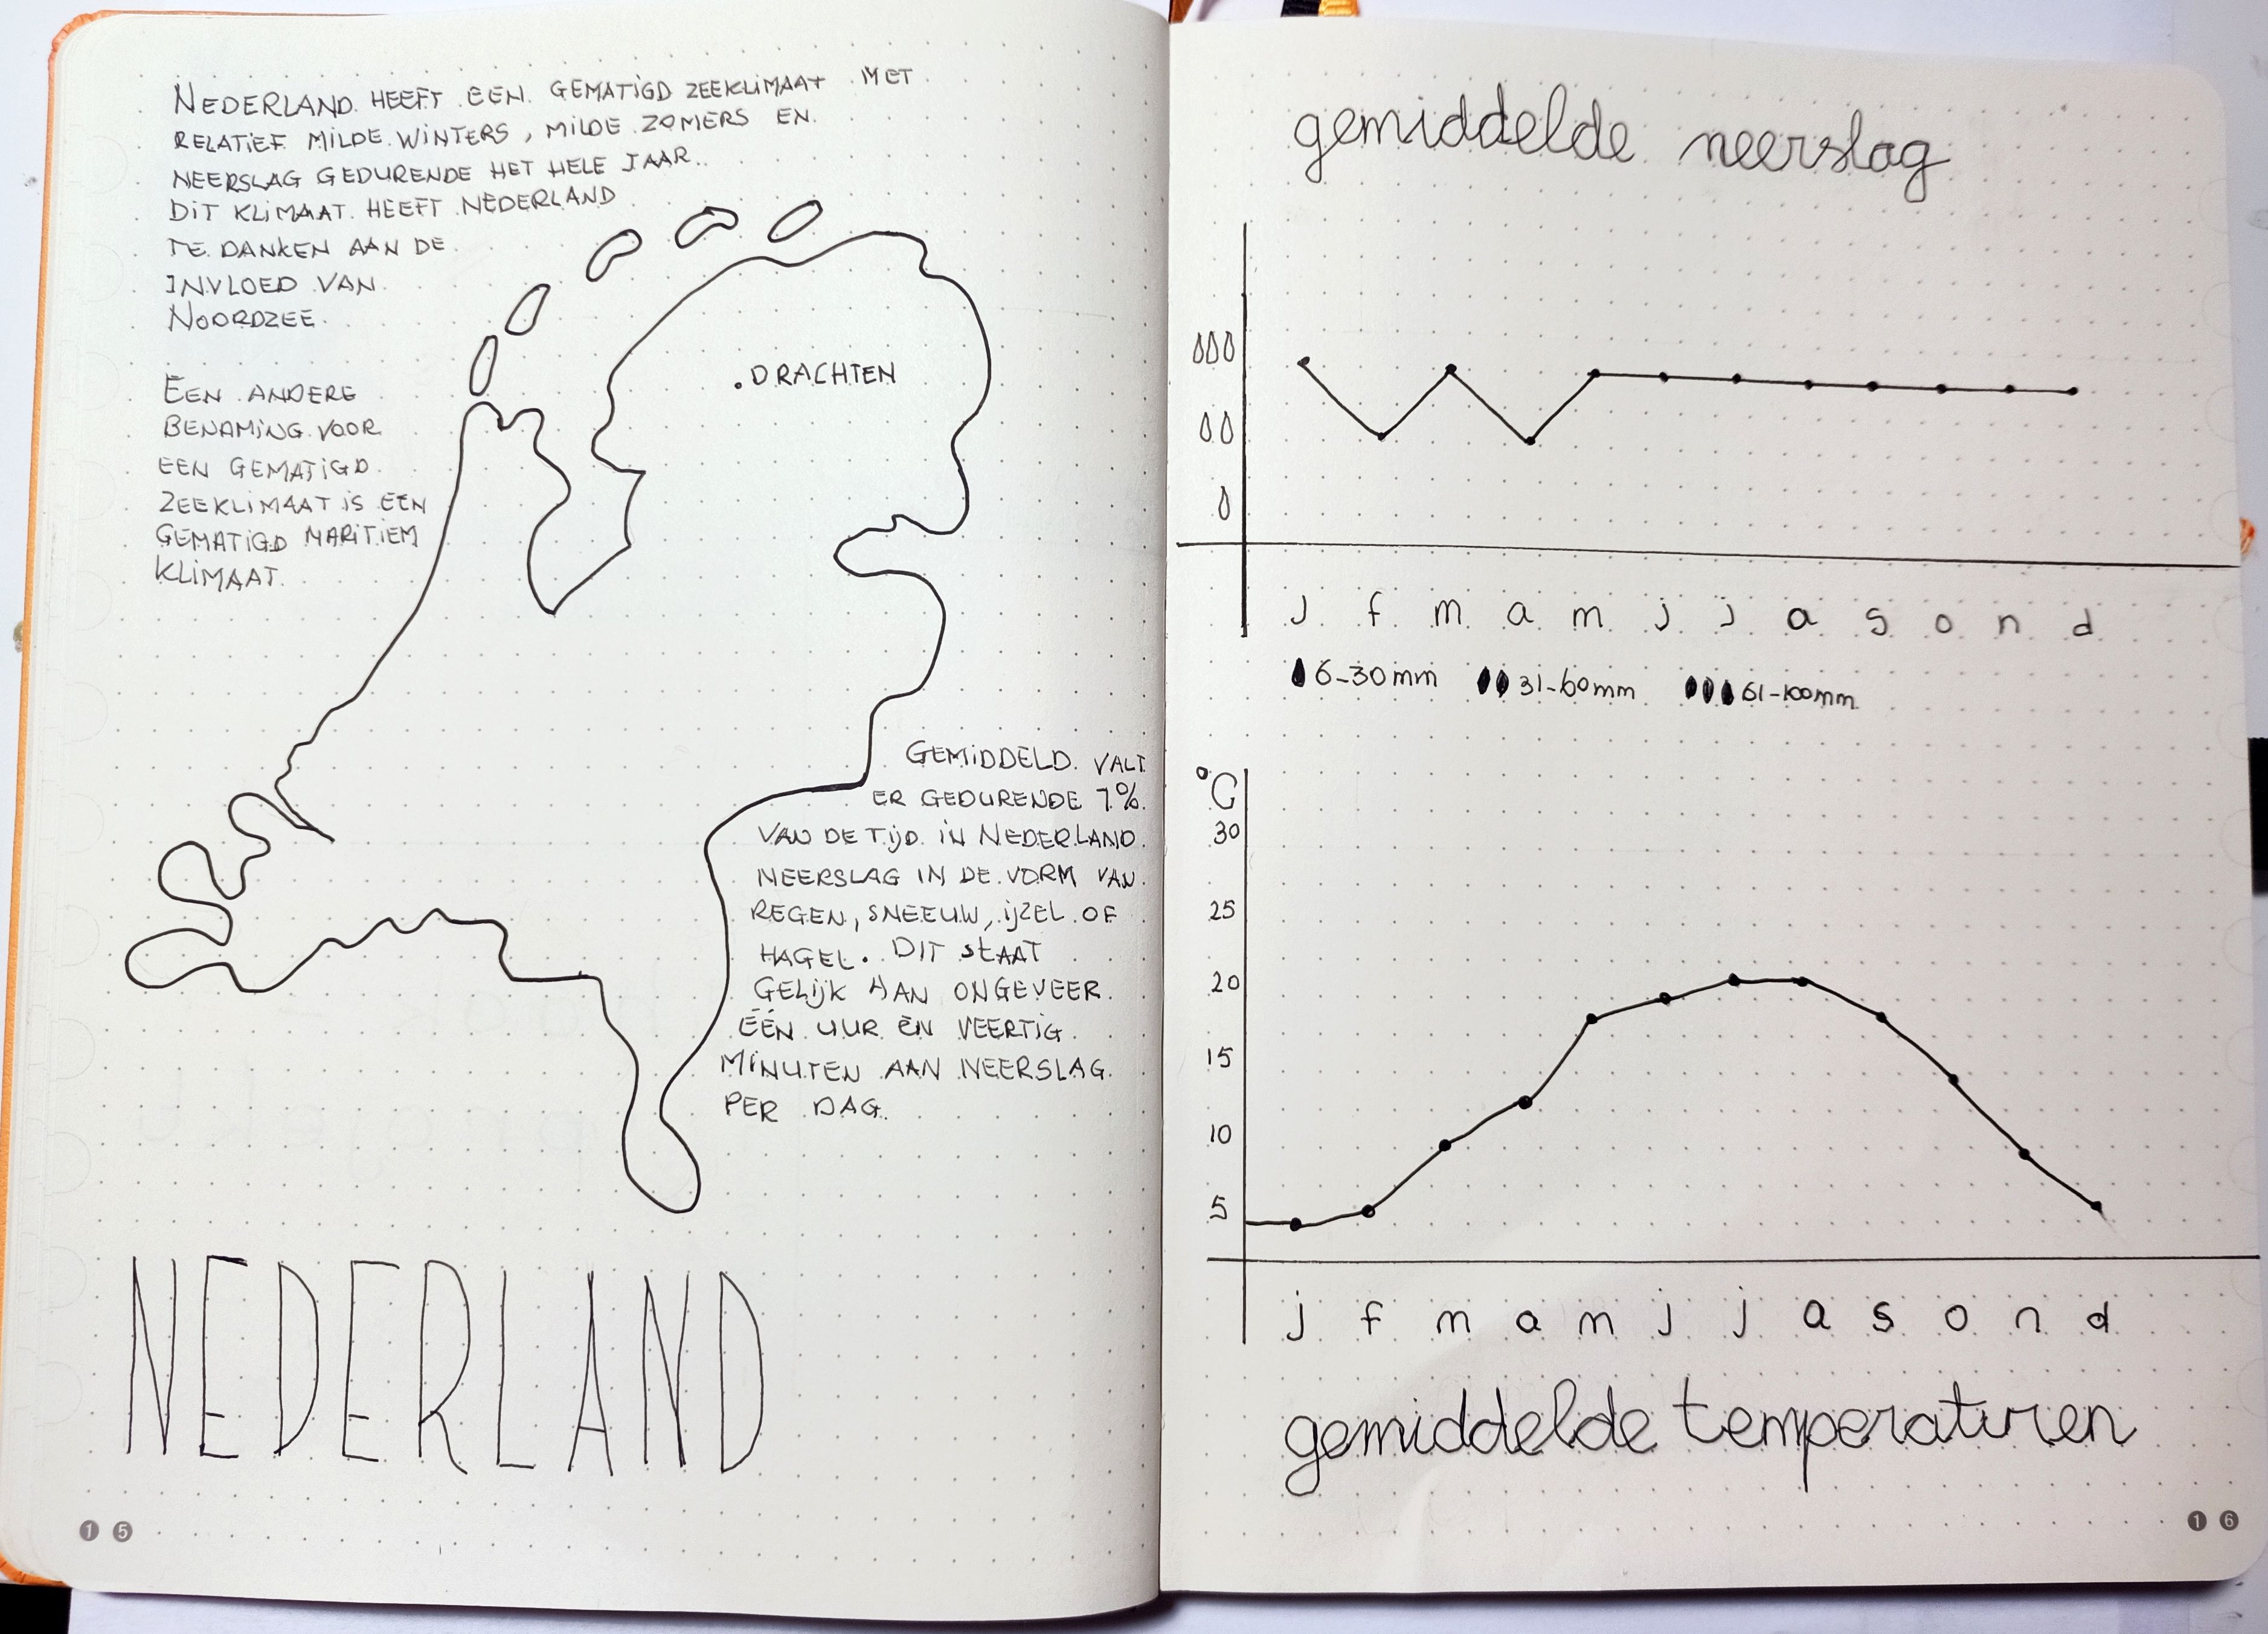 NEDERLAND HEEFT EEN GEMATIGD ZEEKLIMAAT MET
RELATIEF MILDE WINTERS, MILDE ZOMERS EN
NEERSLAG GEDURENDE HET HELE JAAR.
DIT KLIMAAT HEEFT NEDERLAND
TE DANKEN AAN DE
INVLOED VAN
NOORDZEE.
EEN ANDERE
BENAMING VOOR
EEN GEMATIGD
ZEEKLIMAAT IS EEN
GEMATIGD MARITIEM
KLIMAAT.
.DRACHTEN
GEMIDDELD VALT
ER GEDURENDE 7%
VAN DE TIJD IN NEDERLAND
NEERSLAG IN DE VORM VAN
REGEN, SNEEUW, IJZEL OF
HAGEL. DIT STAAT
GELIJK AAN ONGEVEER
ÉÉN UUR EN VEERTIG
MINUTEN AAN NEERSLAG
PER DAG.
NEDERLAND
1 5
gemiddelde neerslag
j f m a m j j a s o n d
6-30mm 31-60mm 61-100mm
°C
30
25
20
15
10
5
j f m a m j j a s o n d
gemiddelde temperaturen
1 6